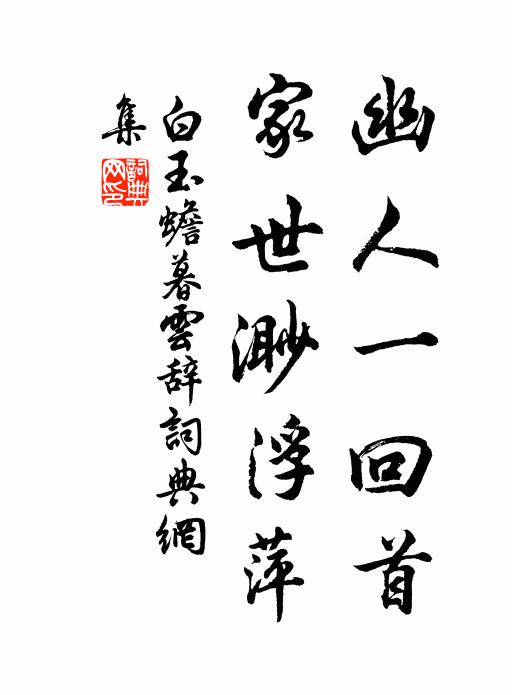 幽人一回首
家世渺浮萍
白玉蟾暮雲辞詞典網
集
詞典
网印